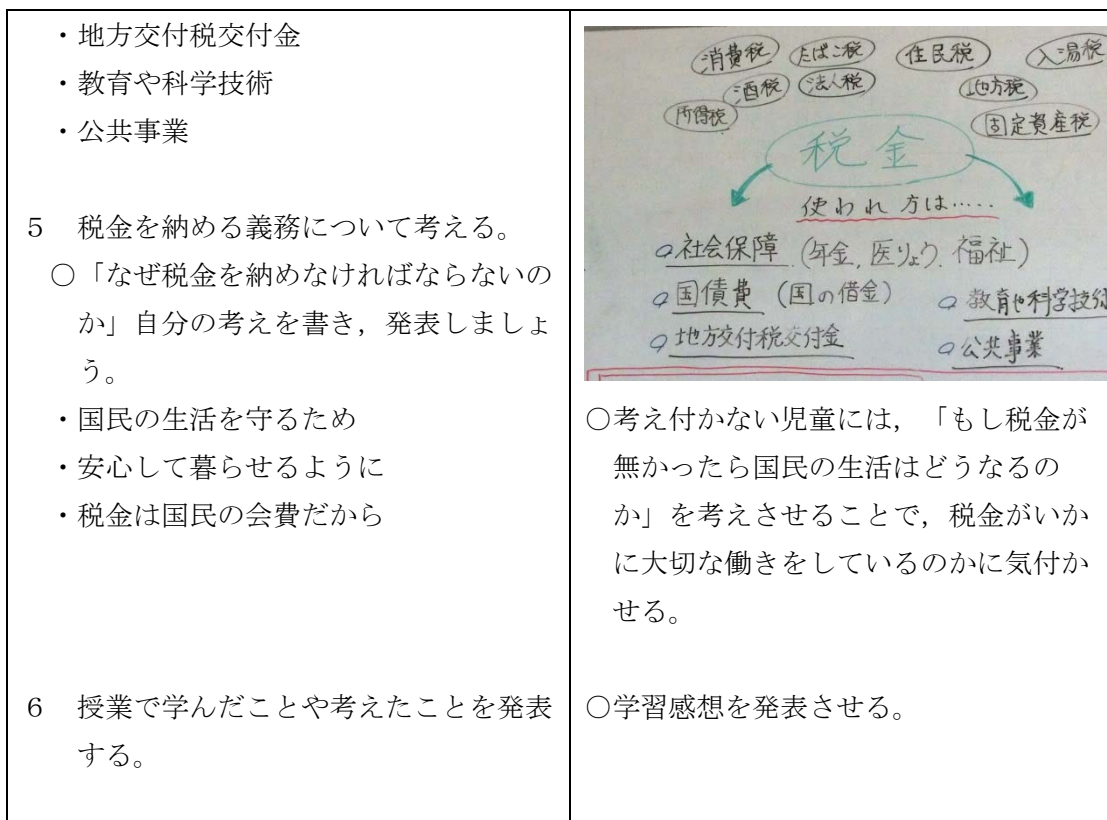 ・地方交付税交付金
・教育や科学技術
・公共事業
5 税金を納める義務について考える。
○「なぜ税金を納めなければならないの
か」自分の考えを書き，発表しましょ
う。
・国民の生活を守るため
・安心して暮らせるように
・税金は国民の会費だから
6 授業で学んだことや考えたことを発表
する。
消費税 たばこ税 住民税 入湯税
酒税 法人税 地方税
所得税 固定資産税
税金
使われ方は……
社会保障 (年金, 医りょう, 福祉)
国債費 (国の借金) 教育や科学技術
地方交付税交付金 公共事業
○考え付かない児童には，「もし税金が
無かったら国民の生活はどうなるの
か」を考えさせることで，税金がいか
に大切な働きをしているのかに気付か
せる。
○学習感想を発表させる。